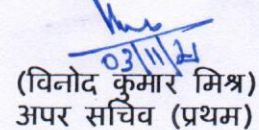 03/11/21
(विनोद कुमार मिश्र)
अपर सचिव (प्रथम)